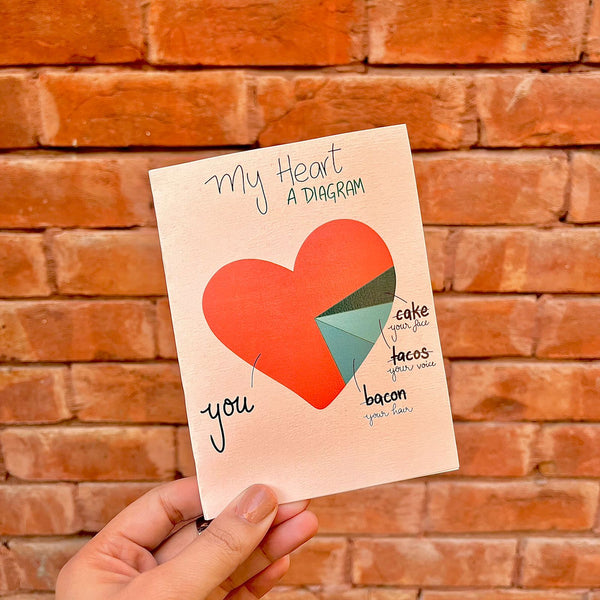 My Heart
A DIAGRAM
cake
your face
tacos
your voice
bacon
your hair
you